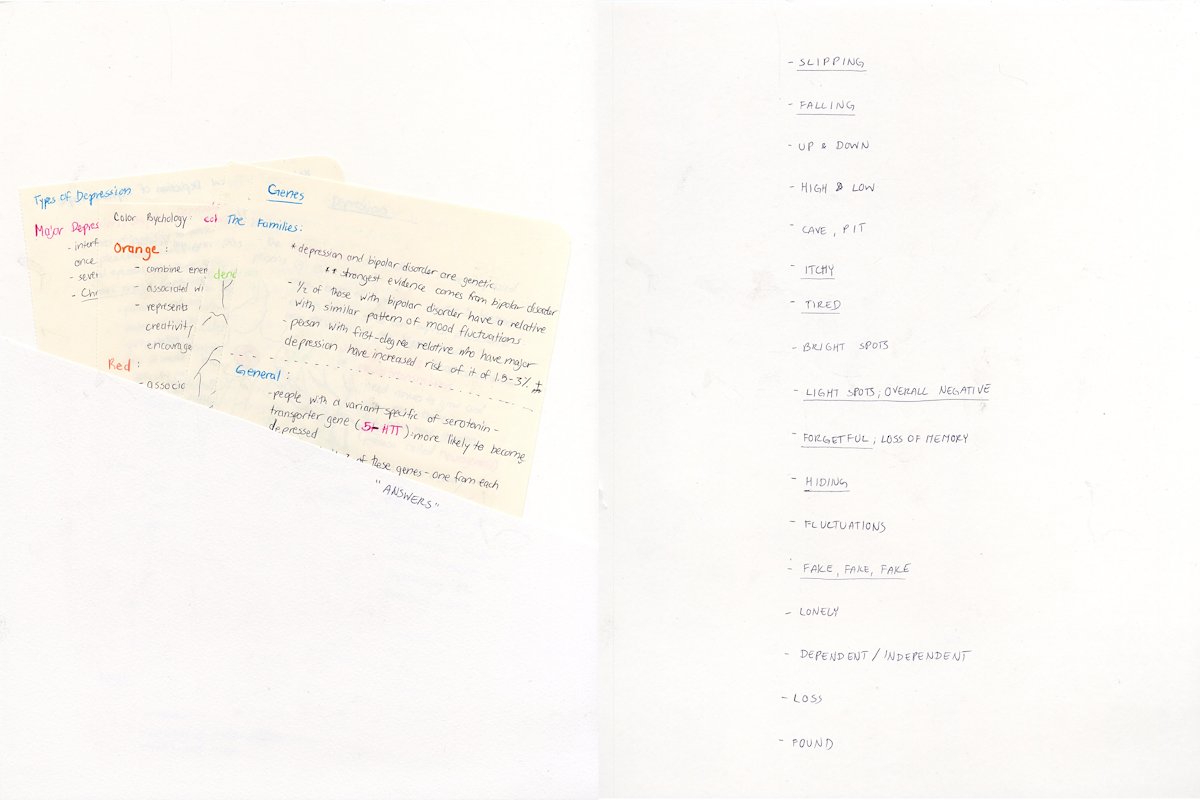 Types of Depression
Major Depres
- interf
once
- seve
- Chr
Color Psychology: col
Orange:
- combine ener
- associated wi
- represents
creativity
encourage
Red:
- associa
dend
Genes
The Families:
* depression and bipolar disorder are genetic
** strongest evidence comes from bipolar disorder
- 1/2 of those with bipolar disorder have a relative
with similar pattern of mood fluctuations
- person with first-degree relative who have major
depression have increased risk of it of 1.5-3%
General:
- people with a variant specific of serotonin-
transporter gene (5-HTT): more likely to become
depressed
of these genes - one from each
"ANSWERS"
- SLIPPING
- FALLING
- UP & DOWN
- HIGH & LOW
- CAVE, PIT
- ITCHY
- TIRED
- BRIGHT SPOTS
- LIGHT SPOTS; OVERALL NEGATIVE
- FORGETFUL; LOSS OF MEMORY
- HIDING
- FLUCTUATIONS
- FAKE, FAKE, FAKE
- LONELY
- DEPENDENT/INDEPENDENT
- LOSS
- FOUND